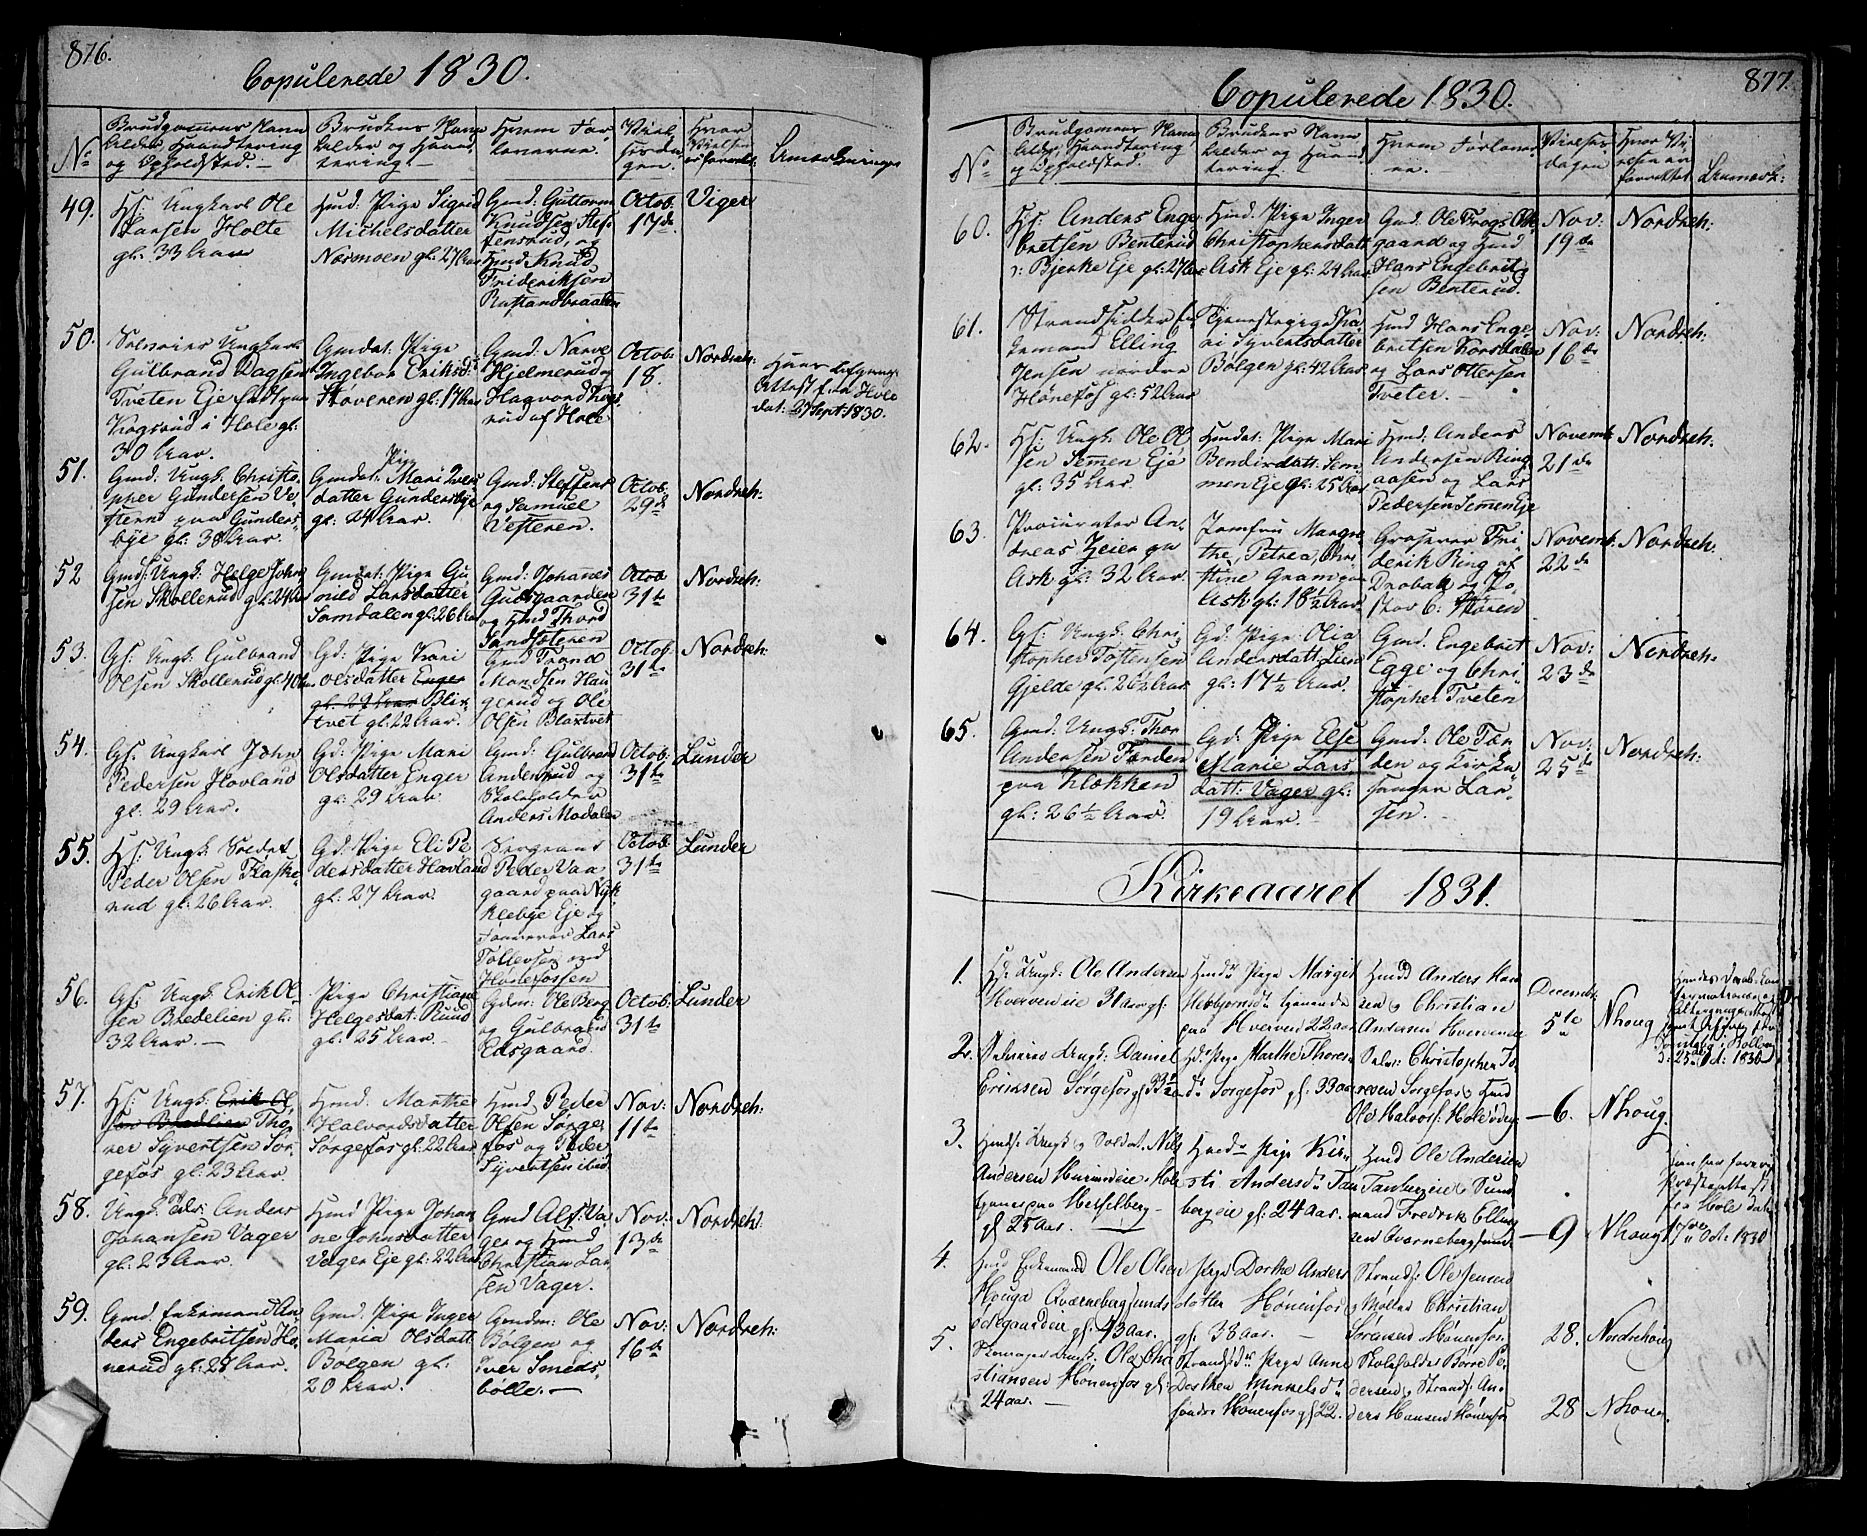 876.
Copulerede 1830.
No
Brudgommens Navn
Alder, Haandtering
og Opholdsted.
Brudens Navn
Alder og Haand
tering.
Hvem For
loverne.
Viel
sesda
gen.
Hvor
Vielsen
er forrettet
Anmærkninger
49.
Gs: Ungkarl Ole
Larsen Holte
gl. 33 Aar
Huusm: Pige Sigrid
Michelsdatter
Næsmoen gl: 27 Aar
Gmd: Guttorm
Knudsen Stef
fensrud, og
Hmd: Knud
Frideriksen
Rustandbraaten
Octob:
17de
Viger
50.
Selveier Ungkarl
Gulbrand Dagsen
Tveten Eje født paa
Kogsrud i Hole gl:
30 Aar.
Gmdat: Pige
Ingebor Eriksd:
Støveren gl: 17 Aar
Gmd: Narve
Hjelmerud og
Hagvord Kogs
rud af Hole
Octob:
18.
Nordreh:
Attest fra Hole
dat: 27 Sept: 1830.
51.
Gmd: Ungk: Christo
pher Gundersen Ve
stern paa Gunders
bye gl: 38 Aar.
Pige
Gmdat: Mari Ivers
datter Gundersbye
gl: 24 Aar.
Gmd: Steffens
og Samuel
Vesteren.
Octob:
29de
Nordreh:
52
Gmds: Ungk: Helge John
sen Skollerud gl: 24 Aar
Gmdat: Pige Gu
nild Larsdatter
Samdalen gl: 26 Aar
Gmd: Johannes
Gudsgaarden
og Hmd Thord
Sandsæteren
Octob
31te
Nordreh:
53.
Gs: Ungk: Gulbrand
Olsen Skollerud gl: 40 Aar
Gd: Pige Kari
Olsdatter Enger
gl: 29 Aar Blix
tvet gl: 22 Aar.
Gmd Trond
Mondsen Hau
gerud og Ole
Olsen Blaxtvet
Octob:
31te
Nordreh:
54.
Gs: Ungkarl John
Pedersen Hovland
gl: 29 Aar.
Gd: Pige Mari
Olsdatter Enger
gl: 29 Aar.
Gmd: Gulbrand
Andersrud og
Skoleholder
Anders Modalen
Octob:
31te
Lunder
55.
Hs: Ungk: Soldat
Peder Olsen Flaske
rud gl: 26 Aar.
Gd: Pige Eli Pe
dersdatter Havland
gl: 27 Aar.
Sergeant
Peder Vaa
gaard paa Nyk
klebye Eje og
Lars
Tollevsen ved
Hønefossen
Octob:
31te
Lunder
56.
Gs: Ungk: Erik Ol
sen Bredelien gl:
32 Aar.
Pige Christiane
Helgesdat: Ruud
gl: 25 Aar.
Gdm: Ole Berg
og Gulbrand
Edsgaard.
Octob:
31te
Lunder
57.
Hs: Ungk: Erik Ol
sen Bredlien Tho
rer Syvertsen Sør
gefos gl: 23 Aar.
Hmd: Marthe
Halvordsdatter
Sørgefos gl: 22 Aar
Hmd: Peder
Olsen Sørge
fos og Peder
Syvertsen ibid.
Nov:
11te
Nordreh:
58.
Ungk: Anders
Johansen Vager
gl: 23 Aar.
Hmd Pige Johan
ne Johnsdatter
Vager Eje gl: 22 Aar
Gmd Alf: Va
ger og Hmd
Christian Lar
sen Vager.
Nov:
13de
Nordreh:
59.
Gmd: Enkemand An
ders Engebritsen Ho
nerud gl: 28 Aar.
Gmd: Pige Inger
Maria Olsdatt:
Bølgen gl:
20 Aar.
Gmdm: Ole
Bølgen og
Iver Smeds
bølle.
Nov:
16de
Nordreh:
877.
Copulerede 1830.
No
Brudgommens Navn
Alder Haandtering
og Opholdsted.
Brudens Navn
Alder og Haand
tering.
Hvem Forlover
ne.
Vielses
dagen
Hvor Vi
elsen er
forrettet
Anmærk:
60.
Hs: Anders Enge
bretsen Benterud
i Bjerke Eje gl: 27 Aar
Hmd: Pige Inger
Christophersdatt
Ask Eje gl: 24 Aar
Gmd: Ole Trogstøe
gaard og Hmd
Hans Engebrit
sen Benterud.
Nov:
19de
Nordreh:
61.
Strandsidder En
kemand Elling
Jensen nordre
Hønefos gl: 52 Aar
Tjenestepige Ka
ri Syvertsdatter
Bølgen gl: 42 Aar
Hmd Hans Enge
britsen Korsdalen
og Lars Ottersen
Tveter.
Nov:
16de
Nordreh:
62.
Hs: Ungk: Ole Ol
sen Semmen Eje
gl: 35 Aar
Hmdat: Pige Mari
Bendixdatt: Sem
men Eje gl: 25 Aar
Hmd: Anders
Andersen Ring
aasen og Lars
Pedersen Semmen Eje
Novemb:
21de
Nordreh:
63.
Procurator An
dreas Heier paa
Ask gl: 32 Aar.
Jomfru Margre
the, Petrea, Chri
stine Gram paa
Ask gl: 18½ Aar
Grosserer Fri
derik Ring af
Drøbak og Pa
stor C: Støren
Novemb:
22de
Nordreh:
64.
Gs: Ungk: Chri
stopher Tostensen
Gjelde gl: 26½ Aar
Gd: Pige Olia
Andersdatt: Lien
gl: 17½ Aar.
Gmd. Engebrit
Egge og Chri
stopher Tveten
Nov:
23de
Nordreh:
65.
Gmd. Ungk: Thor
Andersen Tanden
paa Klækken
gl: 26½ Aar.
Gd: Pige Else
Marie Lars
datt: Vager gl:
19 Aar.
Gmd: Ole Tan
den og Kirke
sanger Lar
sen.
Nov:
25de
Nordreh:
Kirkeaaret 1831.
1.
Hs: Ungk: Ole Andersen
Hverven eie 31 aar gl:
Hmds Pige Margit
Hesbjørnsd: tjenende
paa Hverven 22 aar
Huusmd Anders Han
sen og Christian
Andersen Hverven eie
Decembr.
5te
Nhoug
Hendes Daab, Con
firmation og
d: 25de Oct: 1830
2.
Selveier Ungk: Daniel
Eriksen Sørgefos gl 33½ a
Hd: Pige Marthe Thores
d: Sørgefos gl: 33 aar
Selv: Christopher To
resen Sørgefos og Hmd
Ole Halvors: Hole ødeg:
— 6.
Nhoug.
3.
Hmds: Ungk: og Soldat Nils
Andersen Hurumeie i Hole
tjener paa Hesselberg
gl: 25 Aar.
Hmds Pige Kir
sti Andersd: Tan
berg eie gl: 24 Aar.
Hmd Ole Andersen
Tanberg eie og Huus
mand Fredrik Ellings
sen Qværnbergsund
— 9
Nhoug
Præsteattest
fra Hole dat:
Oct: 1830
4.
Hmd Enkemand Ole Olsen
Houga Qværnebergsunds
ødegaarden gl: 43 Aar.
Pige Dorthe Anders
datter Hønenfos
gl: 38 aar.
Strands: Ole Jensen
og Møller Christian
Sørensen Hønenfos.
28.
Nordrehoug
5.
Skomager Ungk: Ole Chri
stiansen Hønenfos gl:
24 aar.
Strands: ds Pige Anne
Dorthea Mikkelsd:
søndre Hønenfos gl 22.
Skoleholder Børre Pe
dersen og Strands: An
ders Hansen Hønenfos
28
Nhoug.